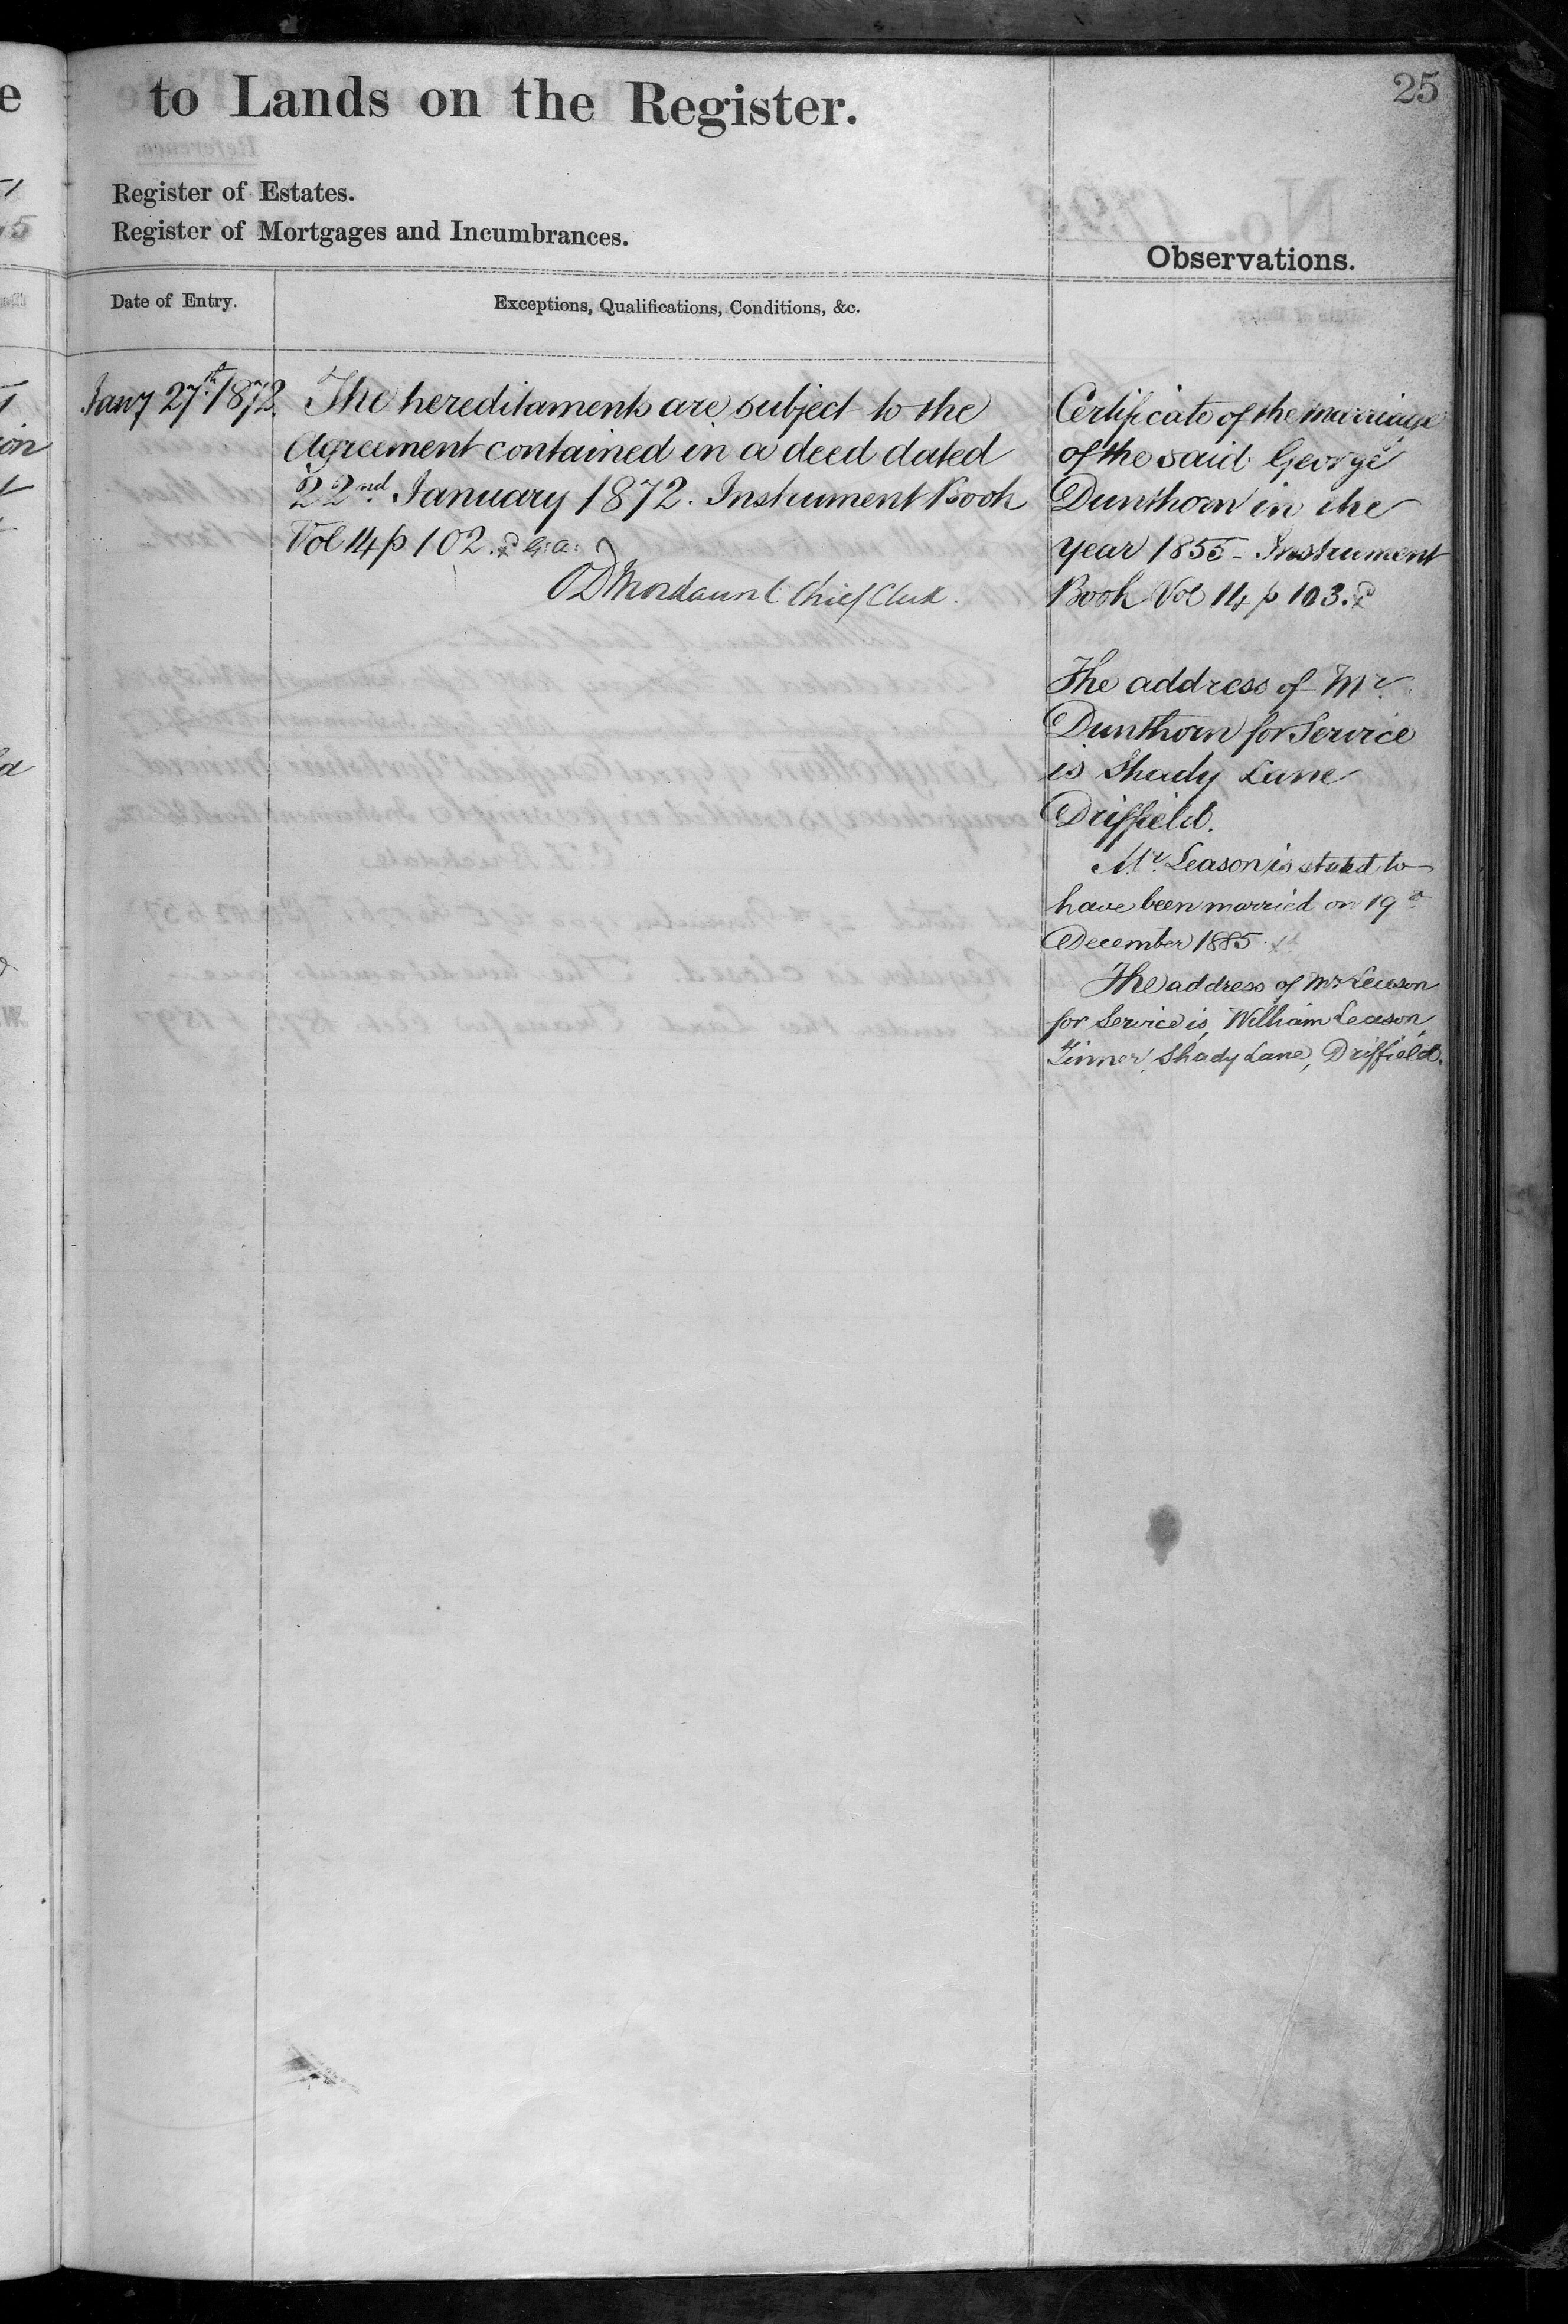 to Lands on the Register.
25
Register of Estates.
Register of Mortgages and Incumbrances.
Observations.
Date of Entry.
Exceptions, Qualifications, Conditions, &c.
Jany 27th 1872.
The hereditaments are subject to the
Agreement contained in a deed dated
22nd January 1872. Instrument Book
Vol 14 p 102.
Mordaunt Chief Clerk.
Certificate of the marriage
of the said George
Dunthorn in the
year 1855 - Instrument
Book Vol 14 p 103.
The address of Mr
Dunthorn for Service
is Shady Lane
Driffield.
Mr. Leason is stated to
have been married on 19th
December 1885.
The address of Mr Leason
for Service is, William Leason,
Tinner, Shady Lane, Driffield.